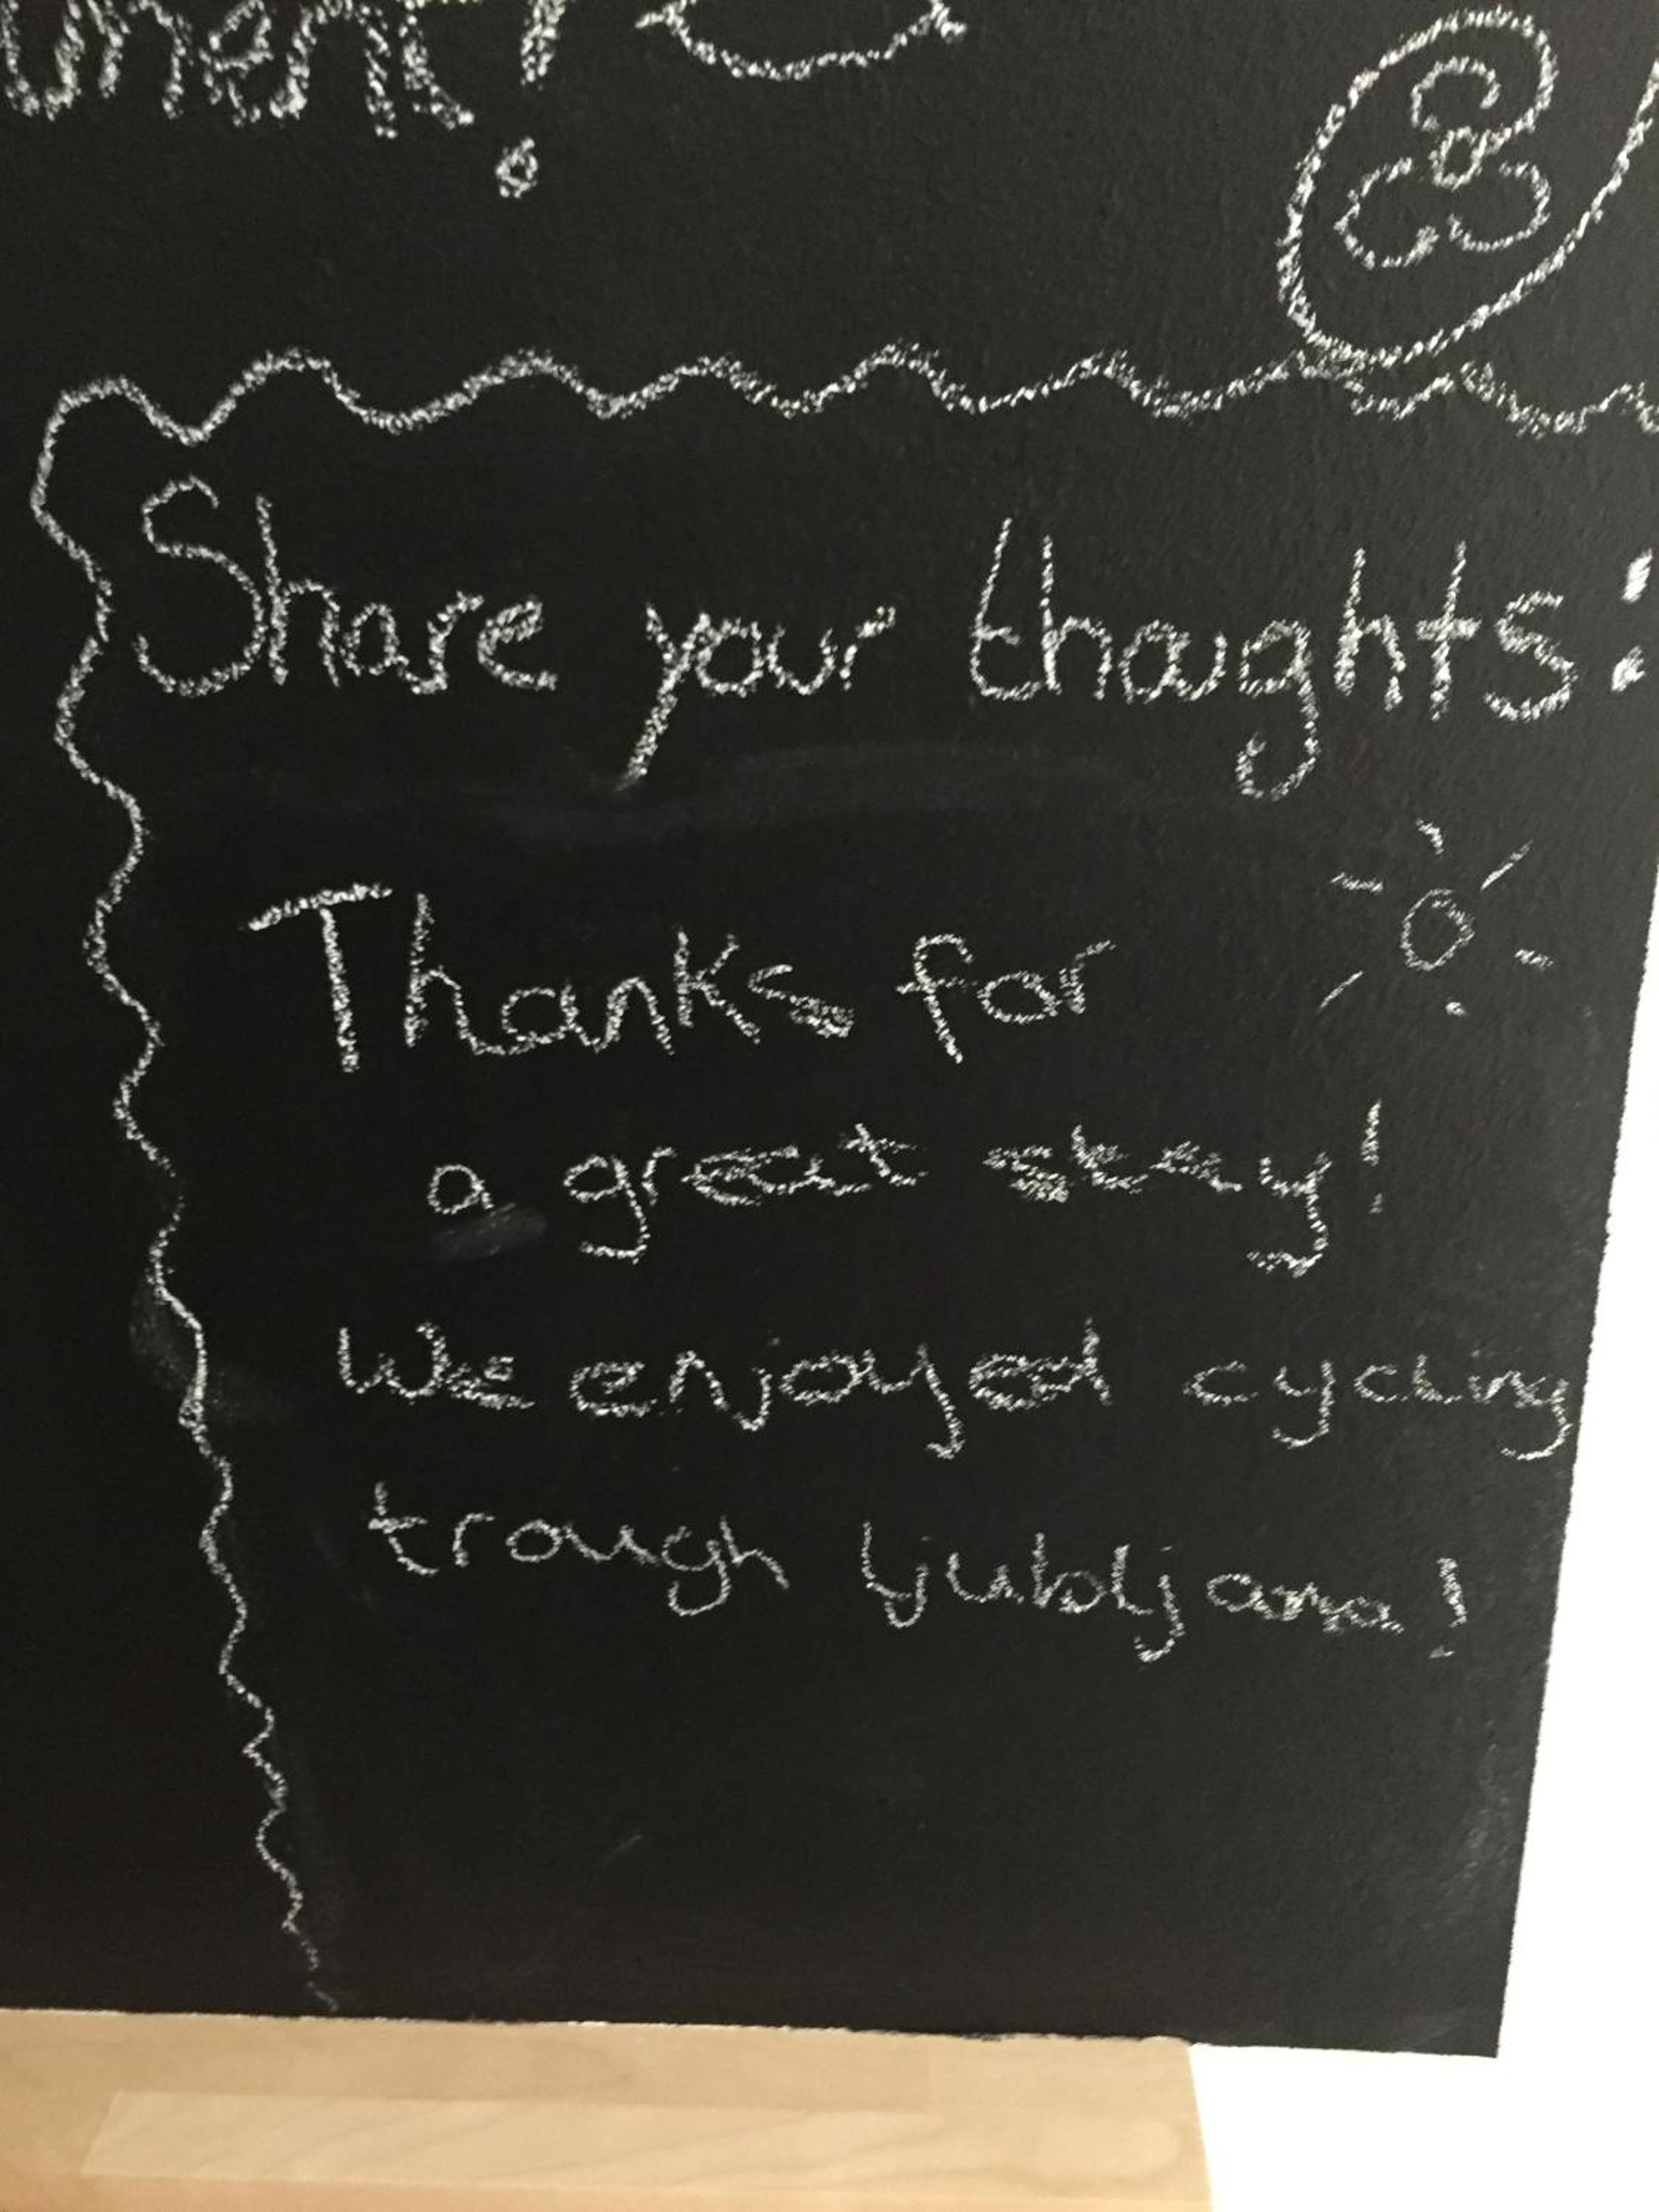 Share your thoughts:
Thanks for
a great stay!
We enjoyed cycling
trough Ljubljana!